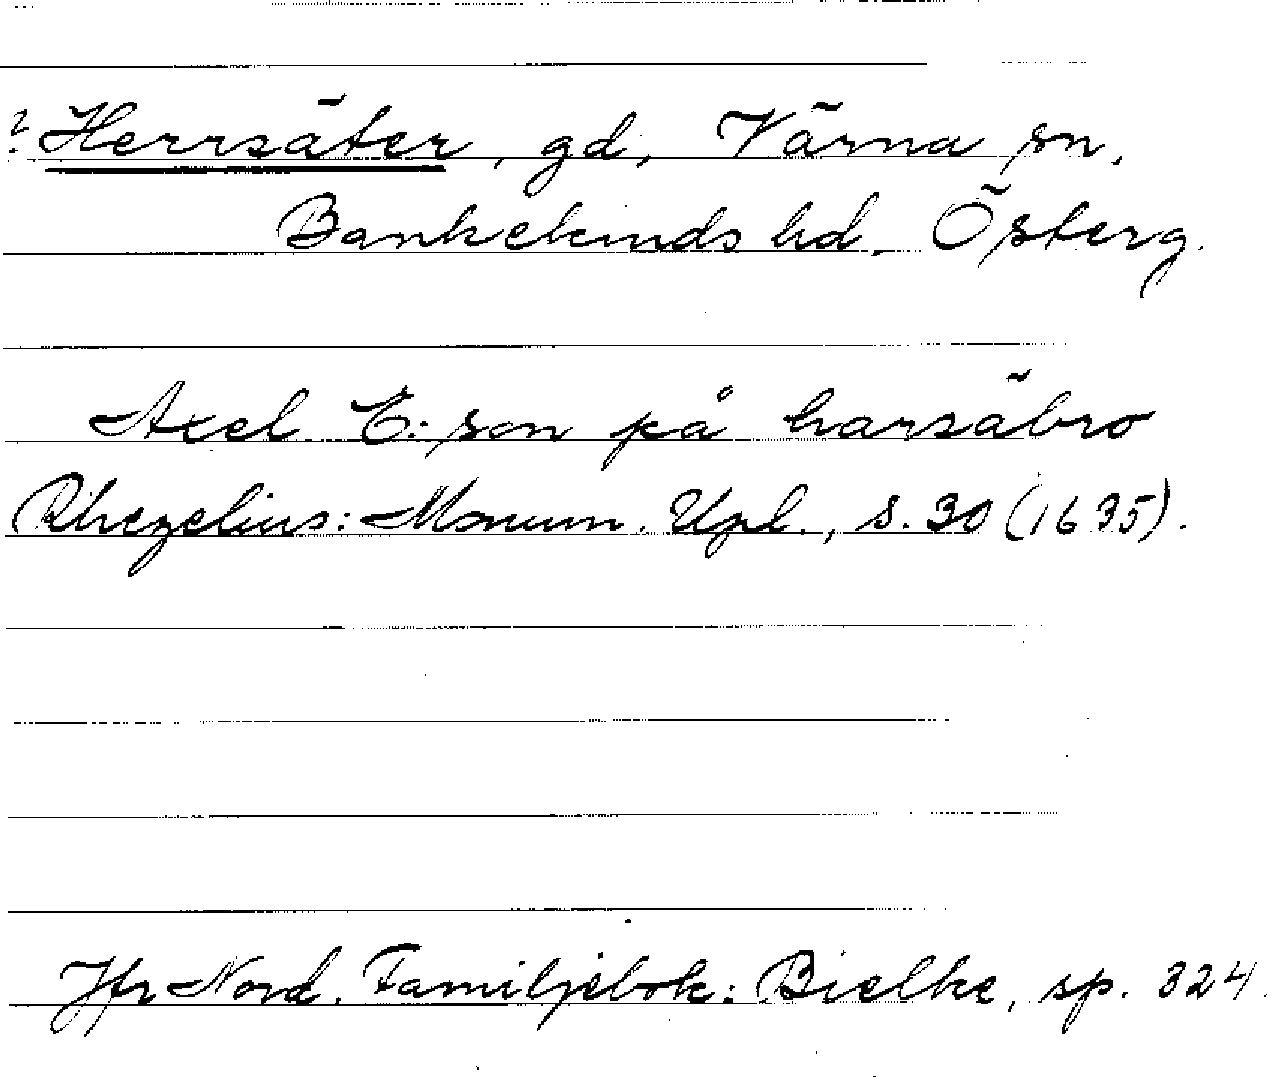 ? Herrsäter, gd, Värna sn,
Bankekinds hd, Österg.
Axel E:son på harsäbro
Rhezelius: Monum. Upl., s. 30 (1635).
Jfr Nord. Familjebok: Bielke, sp. 324.